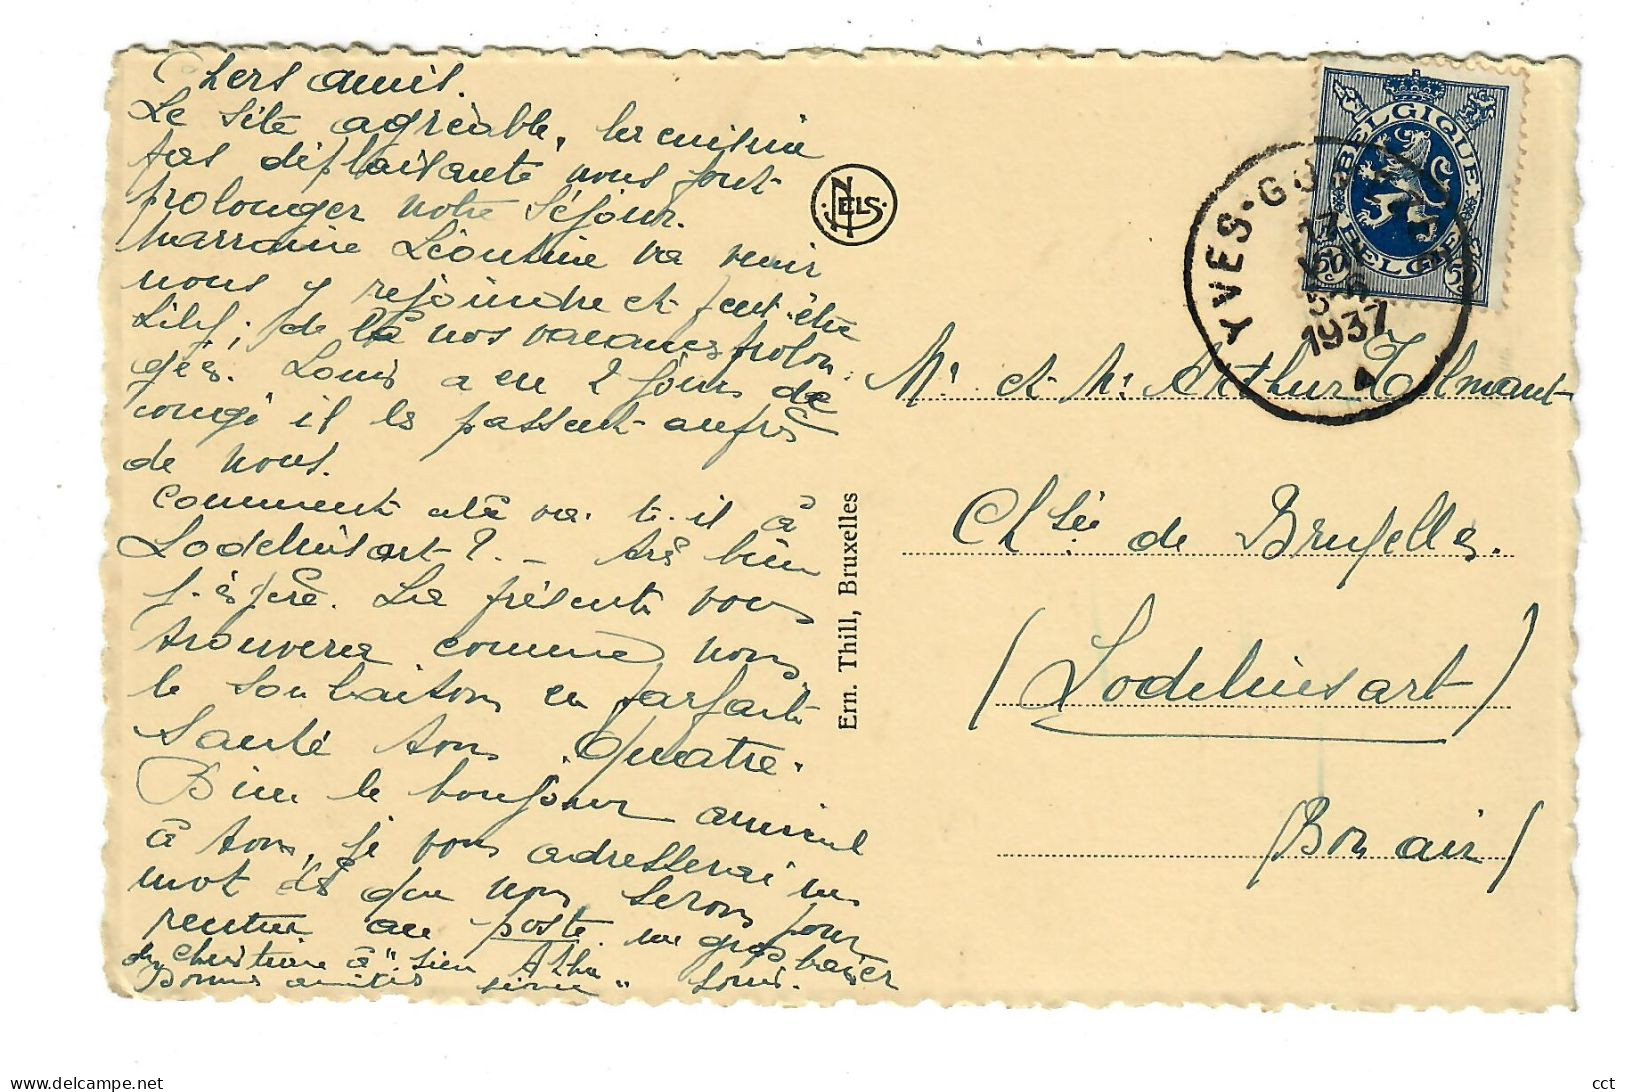 Chers amis.
Le site agréable, la cuisine
pas déplaisante nous font
prolonger notre séjour.
Marraine Léontine va venir
nous y rejoindre et peut-être
Lily; de là nos vacances prolon
gées. Louis a eu 2 jours de
congé il les passent auprès
de nous.
Comment cela va-t-il à
Lodelinsart? – très bien
j'espère. La présente vous
trouvera comme nous
le souhaitons en parfaite
santé tous quatre.
Bien le bonjour amical
à tous, je vous adresserai un
mot dès que nous serons pour
rentrer au poste. un gros baiser
de Christiane à "sien
Bonnes amitiés Louis.
NELS
Ern. Thill, Bruxelles
BELGIQUE
BELGIE
50 50
YVES-GO
17
1937
A
Mr et Me Arthur Tilmant
Chsée de Bruxelles.
(Lodelinsart)
(Bon air)
cct